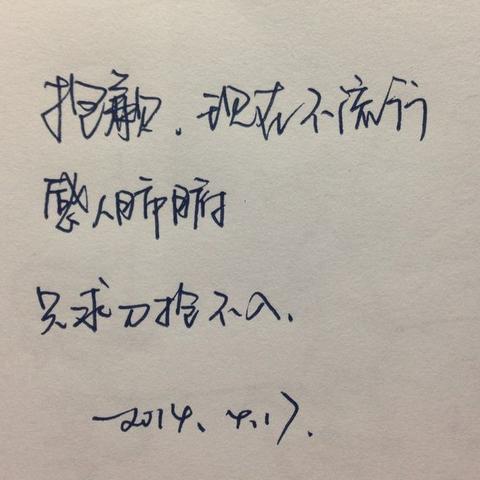 抱歉.现在不流行
感人肺腑
只求刀抢不入.
—2014、4.17.